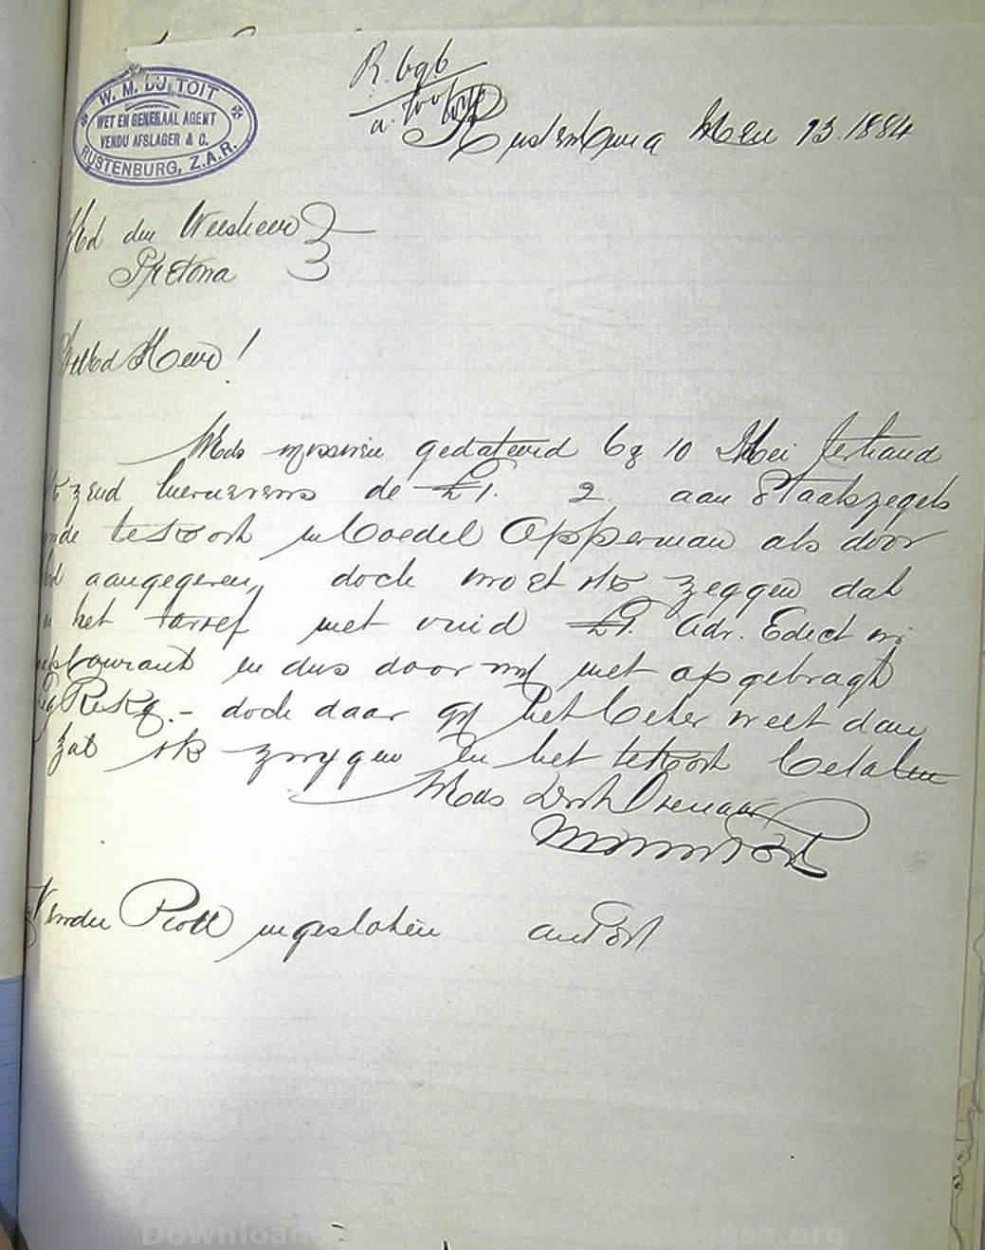 R. 696
W. M. DU TOIT
WET EN GENERAAL AGENT
VENDU AFSLAGER & C.
RUSTENBURG, Z.A.R.
Rustenburg Mei 13. 1884
den Weesheer
Pretoria
Heer!
WEds missive gedateerd 10 Mei
zend hiernevens de £1. 2. aan Staatszegels
te kort in Boedel Opperman als door
aangegeven, doch moet ik zeggen dat
het tarief niet vind £1. Adv. Edict in
courant en dus door mij niet opgebragt
doch daar gij het beter weet dan
zal ik zwijgen en het tekort betalen
WEds Dienaar
Vendu Roll ingesloten